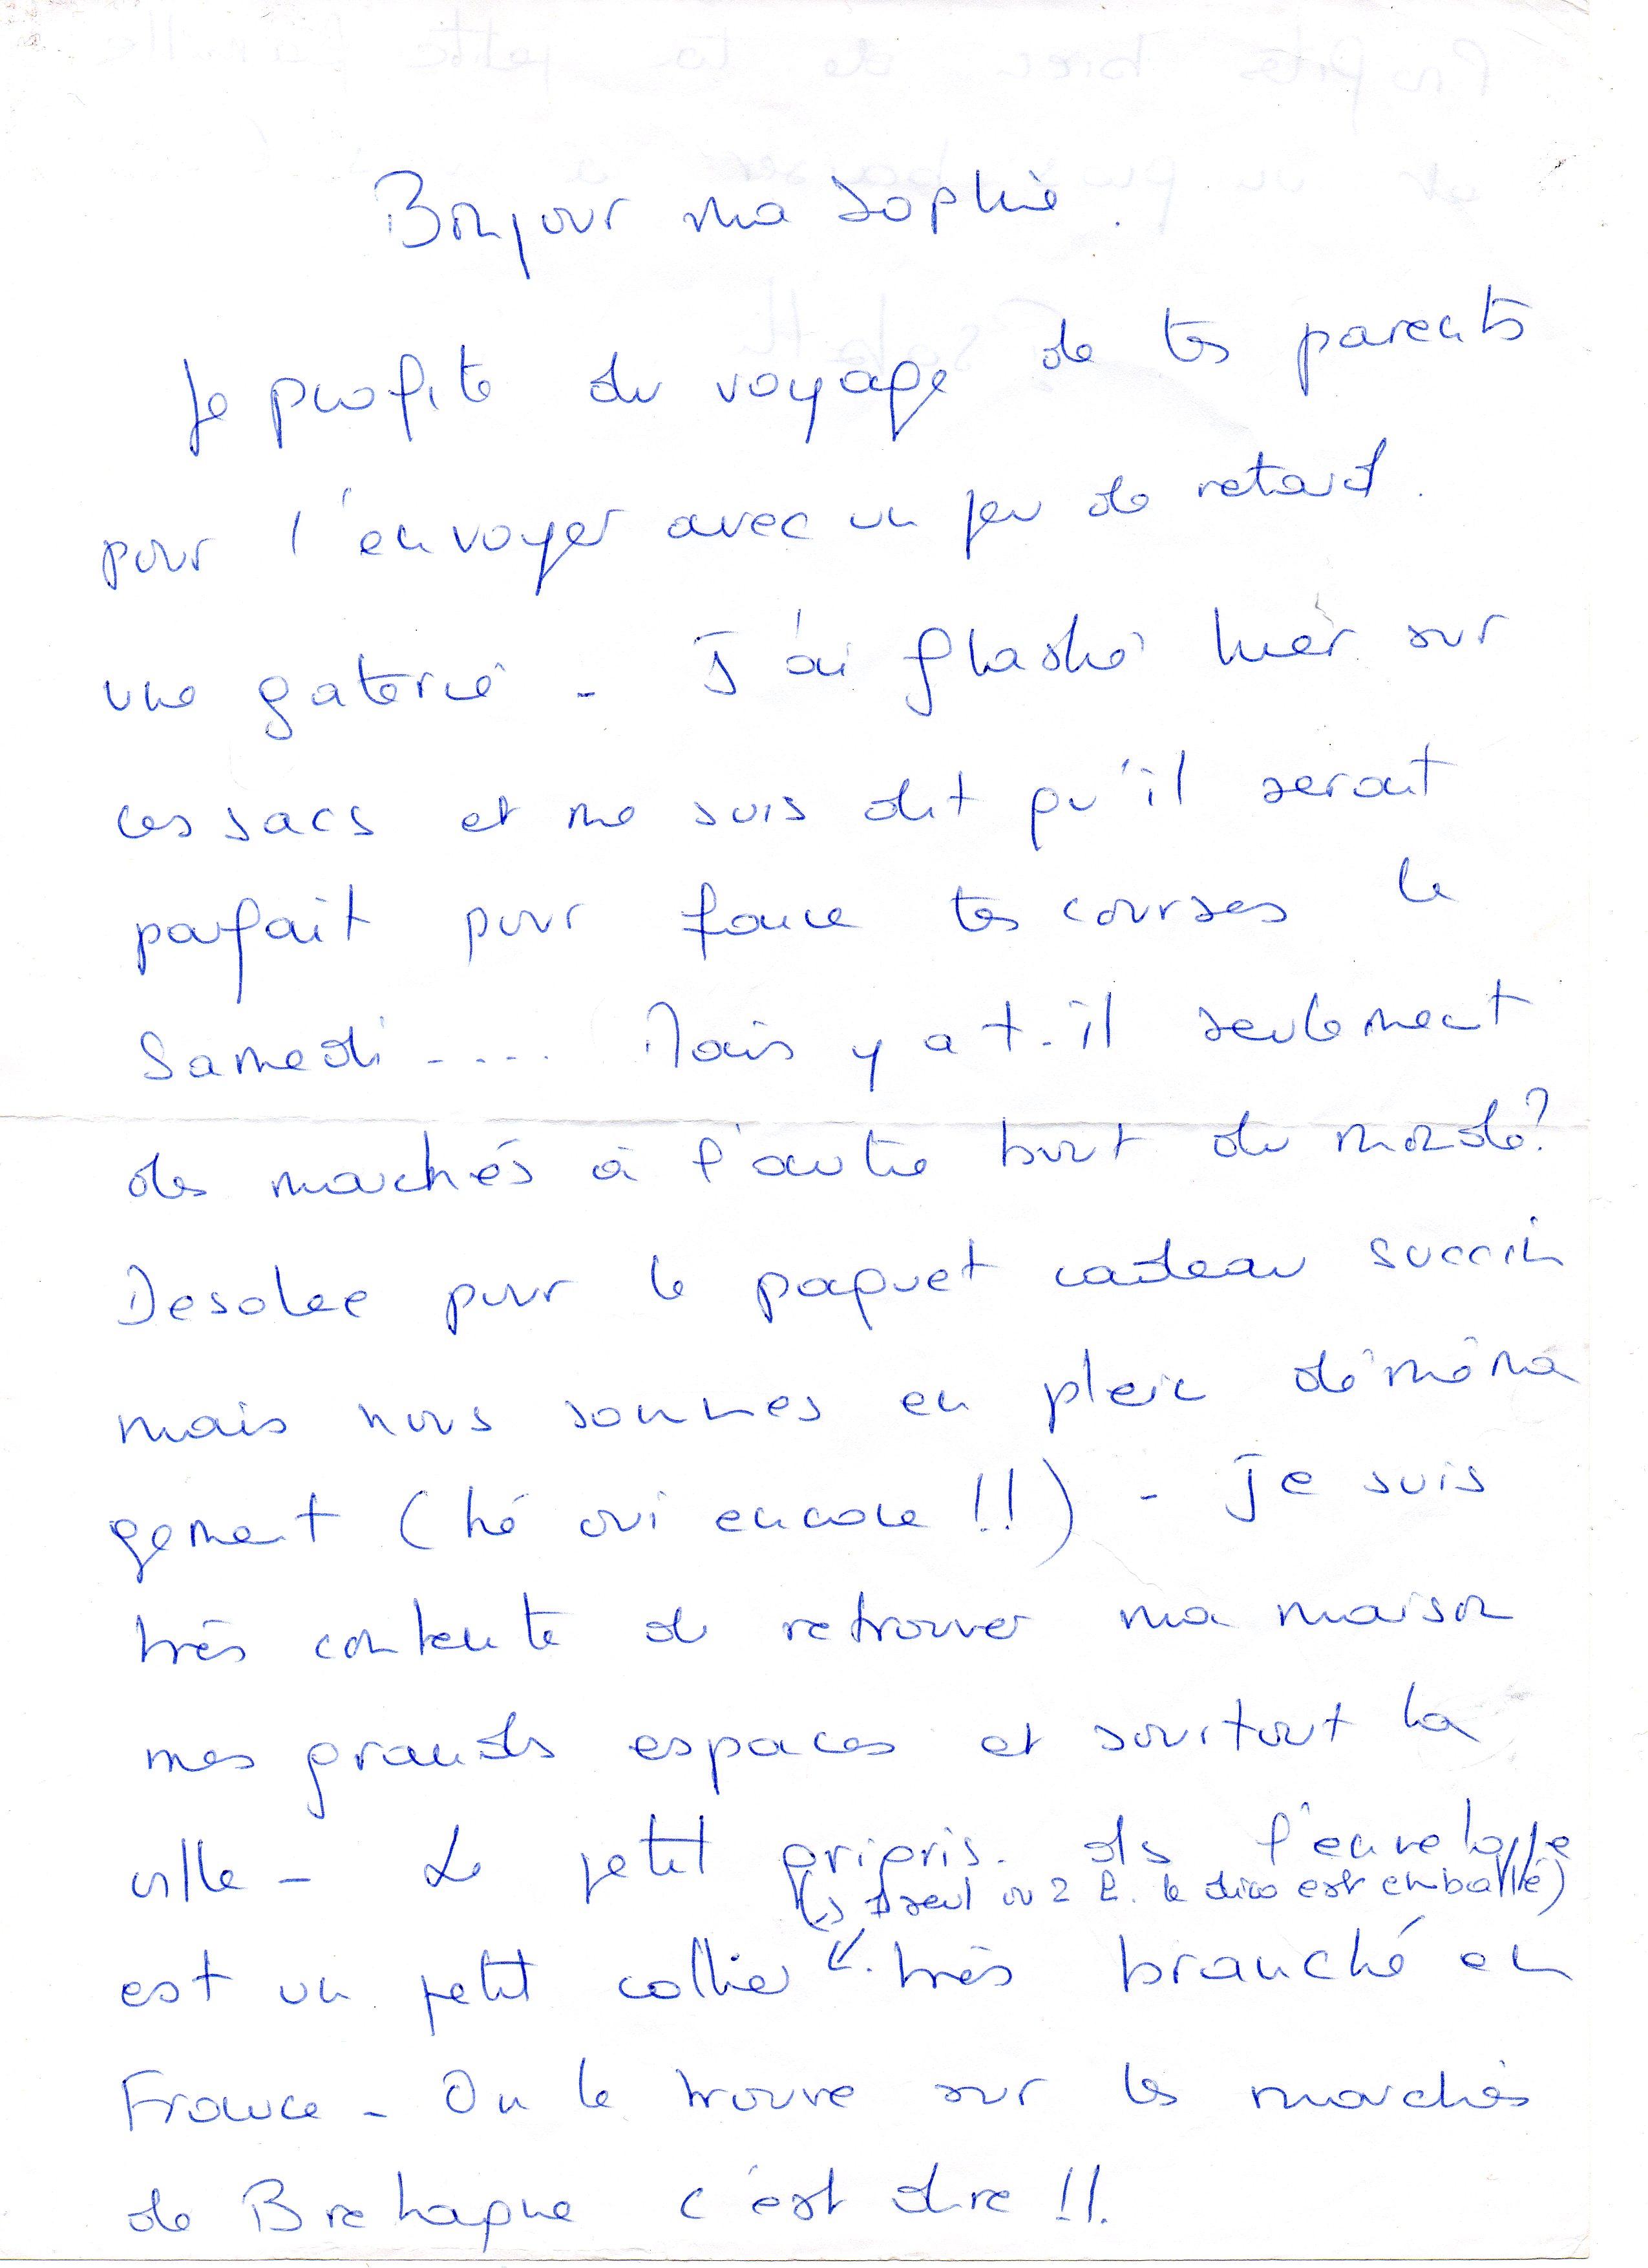 Bonjour ma Sophie.
Je profite du voyage de tes parents
pour t'envoyer avec un peu de retard.
une gaterie - J'ai flashé hier sur
ces sacs et me suis dit qu'il serait
parfait pour faire tes courses le
Samedi ..... Mais y a t-il seulement
des marchés à l'autre bout du monde?
Desolee pour le paquet cadeau succin
mais nous sommes en plein déména
gement (hé oui encore !!) - Je suis
très contente de retrouver ma maison
mes grands espaces et surtout la
ville - Le petit gripris. ds l'enveloppe
(1 seul ou 2 l. le dico est emballé)
est un petit collier très branché en
France - On le trouve sur les marchés
de Bretagne c'est dire !!.